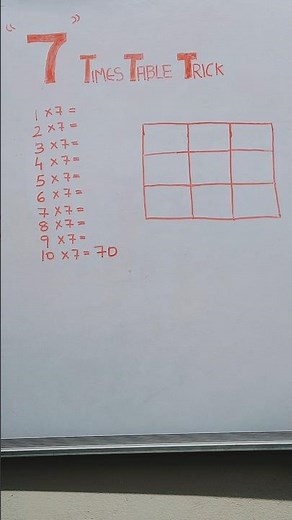 "7" TIMES TABLE TRICK
1 x 7 =
2 x 7 =
3 x 7 =
4 x 7 =
5 x 7 =
6 x 7 =
7 x 7 =
8 x 7 =
9 x 7 =
10 x 7 = 70